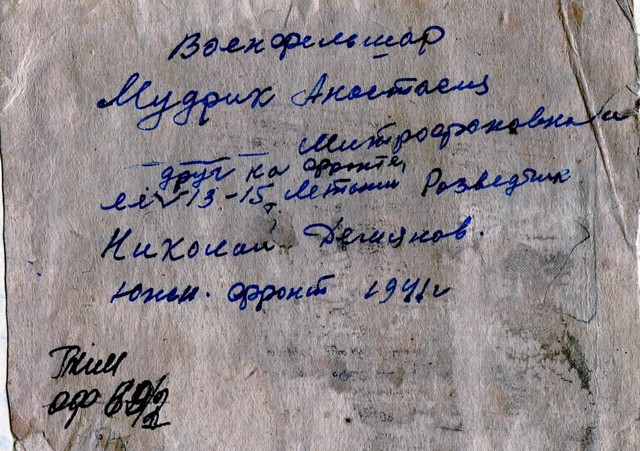 Военфельшар
Мудрих Анастасиц
Митрофановна и
друг на фронте,
её 13-15 Летний Розведчик
Николай Демянов.
Южн. фронт 1941г
ГКИМ
ОФ 69/2